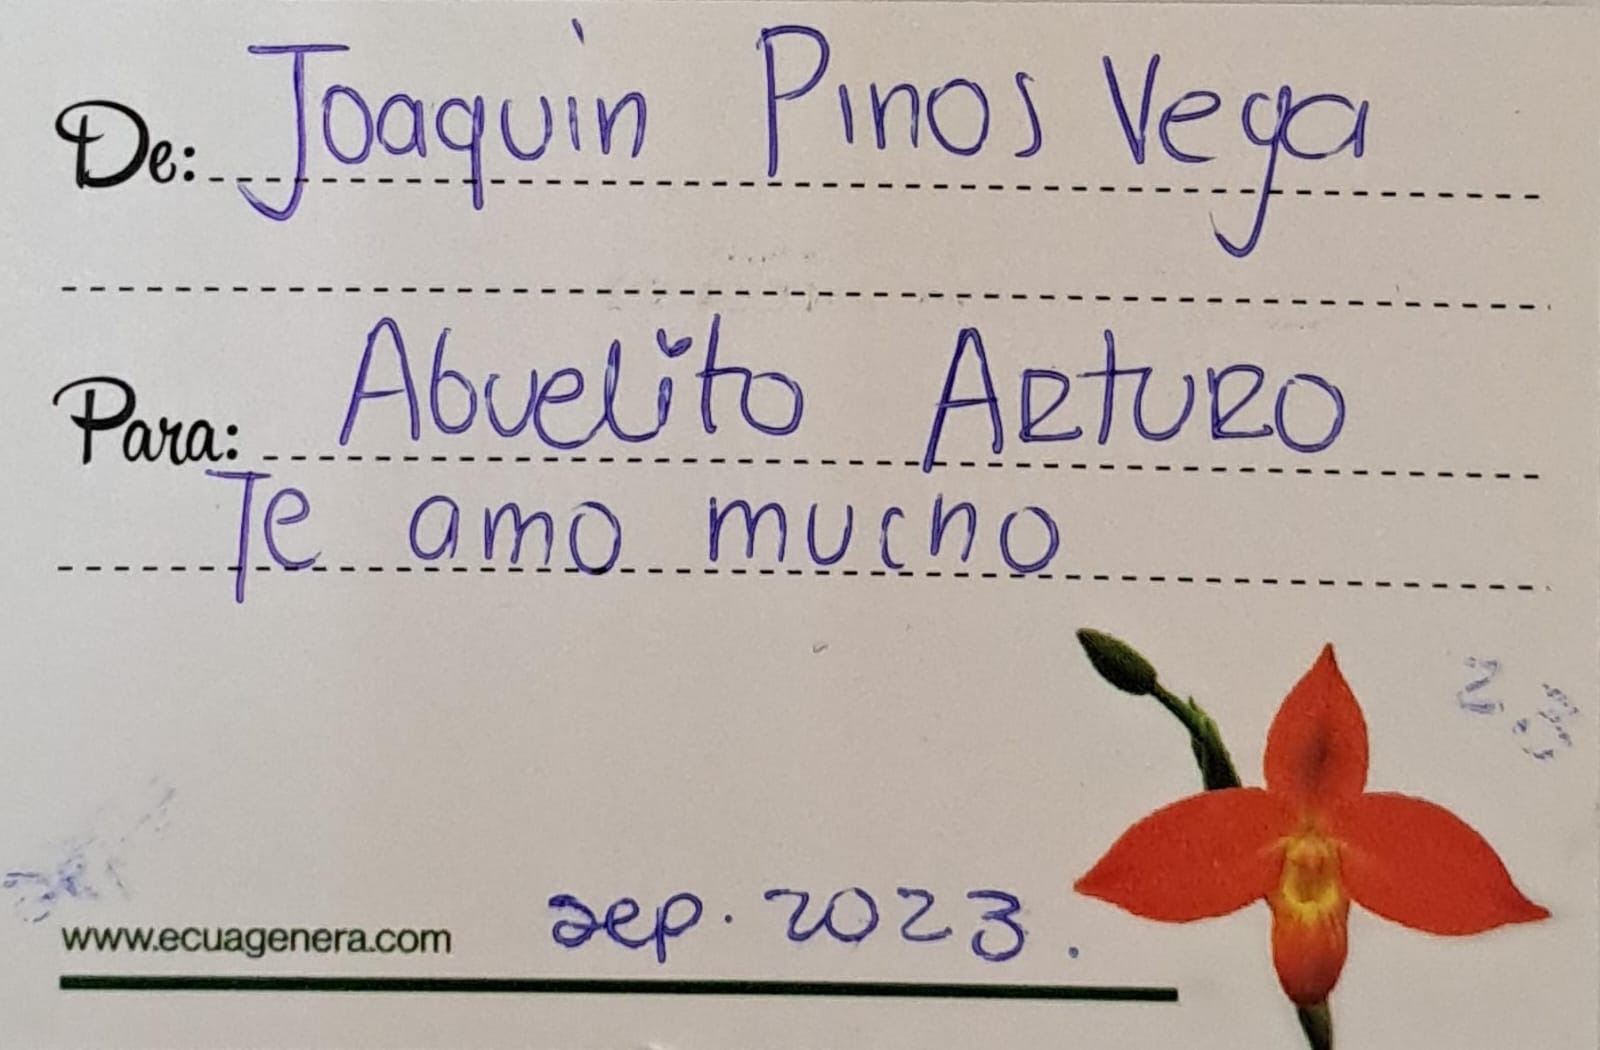 De: Joaquín Pinos Vega
Para: Abuelito Arturo
Te amo mucho
www.ecuagenera.com sep. 2023.